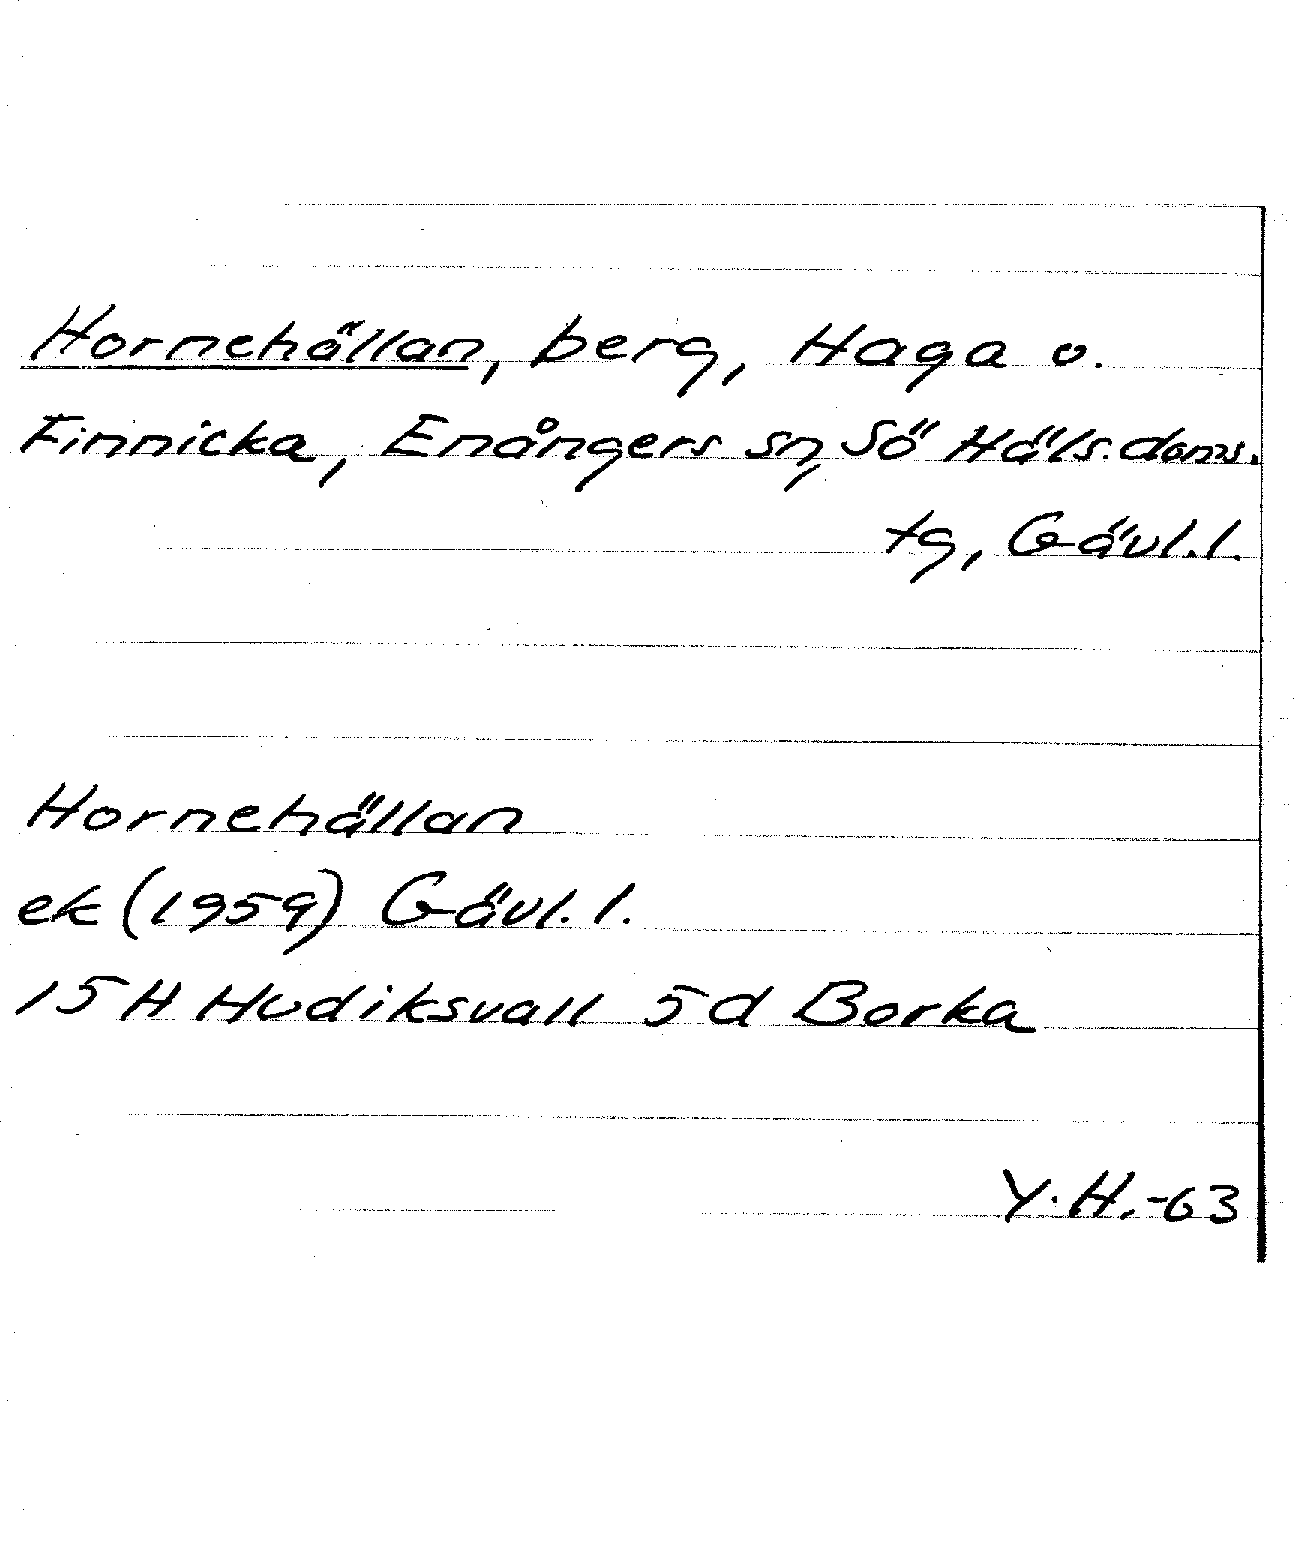 Hornehällan, berg, Haga o.
Finnicka, Enångers sn, Sö Häls. doms.
tg, Gävl. l.
Hornehällan
ek (1959) Gävl. l.
15 H Hudiksvall 5 d Borka
Y. H. -63